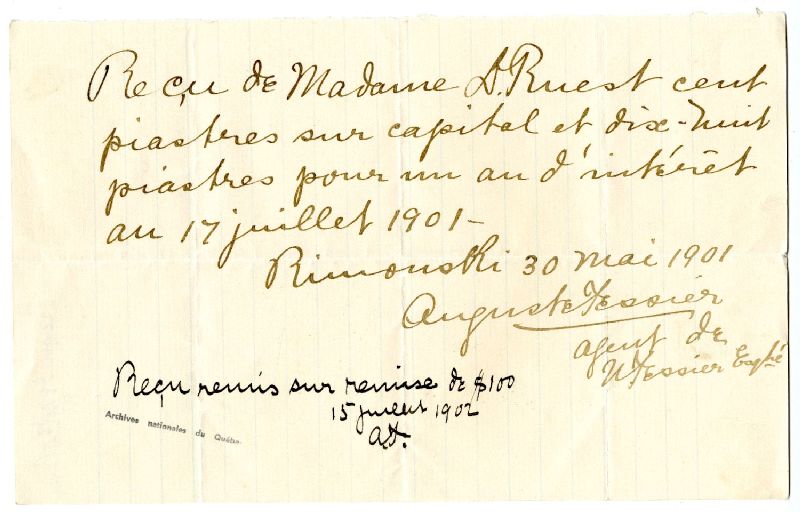 Reçu de Madame D. Ruest cent
piastres sur capital et dix-huit
piastres pour un an d'intérêt
au 17 juillet 1901-
Rimouski 30 Mai 1901
Auguste Tessier
agent de
Tessier
Reçu remis sur remise de $100
15 juillet 1902
A.T.
Archives nationales du Québec